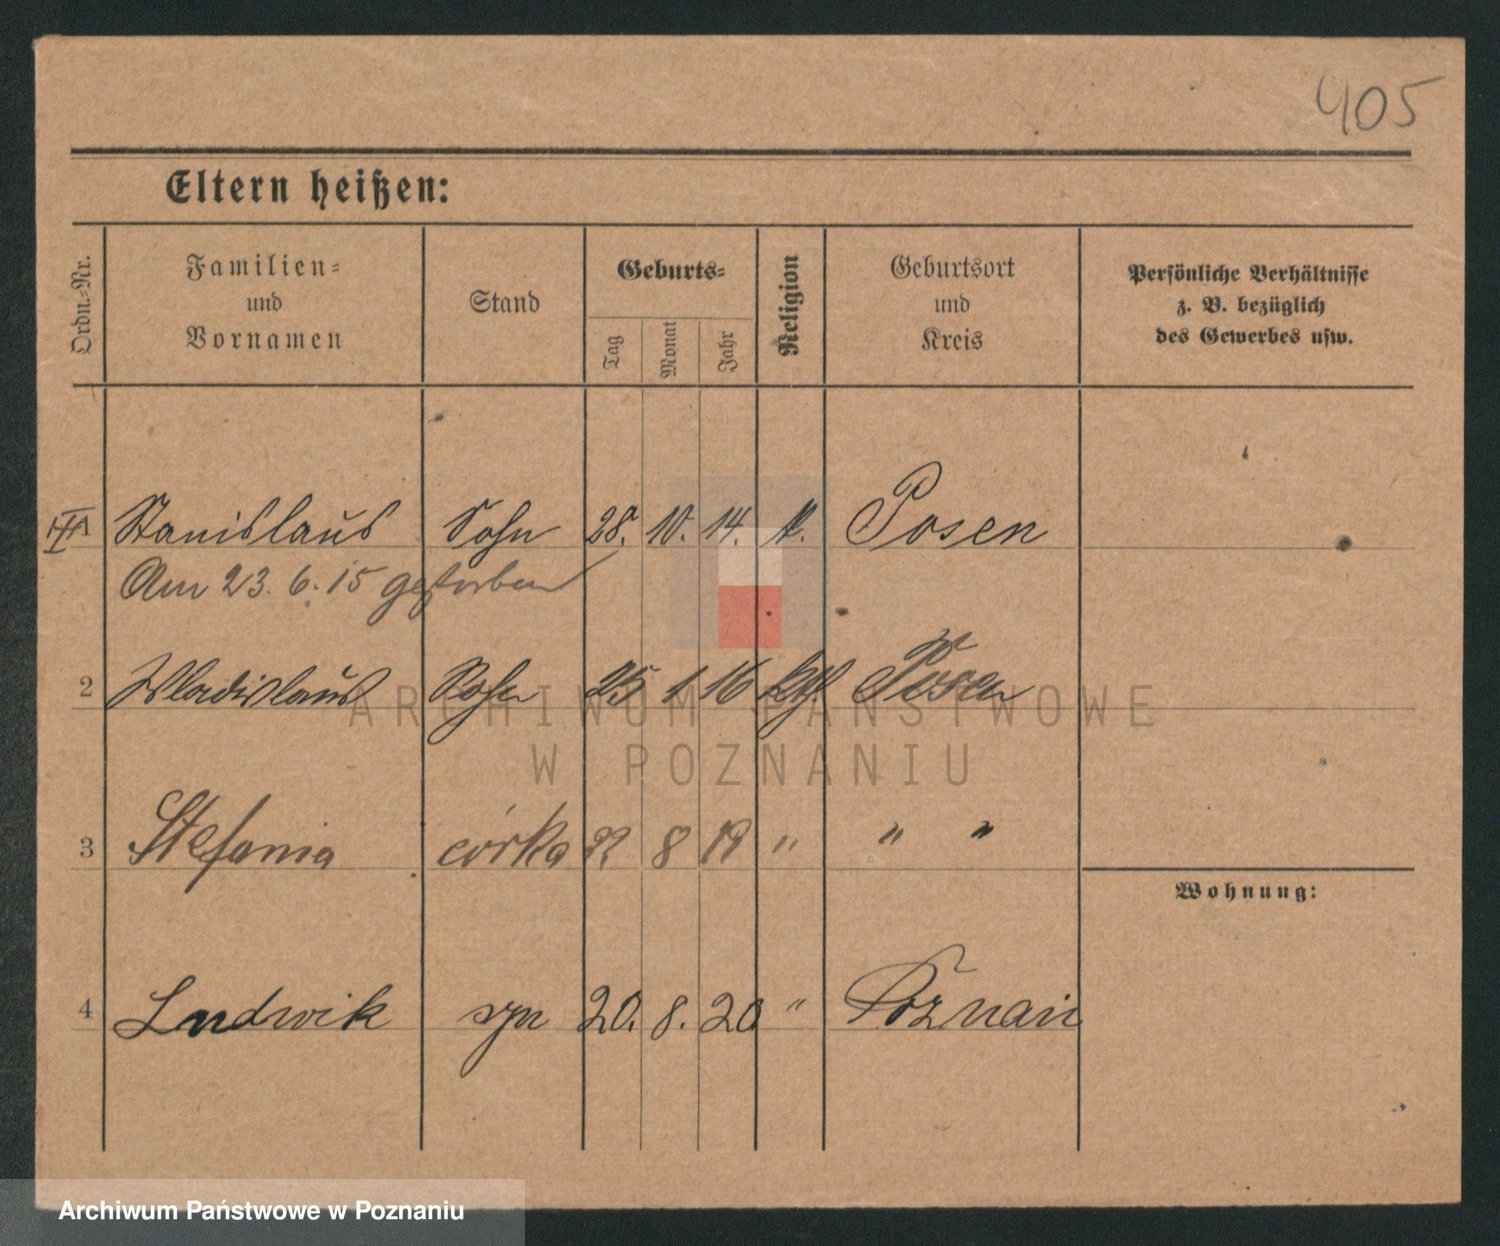 405
Eltern heißen:
Ordn.-Nr.
Familien-
und
Vornamen
Stand
Geburts-
Tag
Monat
Jahr
Religion
Geburtsort
und
Kreis
Persönliche Verhältnisse
z. B. bezüglich
des Gewerbes usw.
1 Stanislaus Sohn 28. 10. 14. k. Posen
Am 23. 6. 15 gestorben
2 Wladislaus Sohn 25 1 16 kth. Posen
ARCHIWUM PAŃSTWOWE
W POZNANIU
3 Stefania córka 22 8 19 " " "
Wohnung:
4 Ludwik syn 20. 8. 20 " Poznań
Archiwum Państwowe w Poznaniu